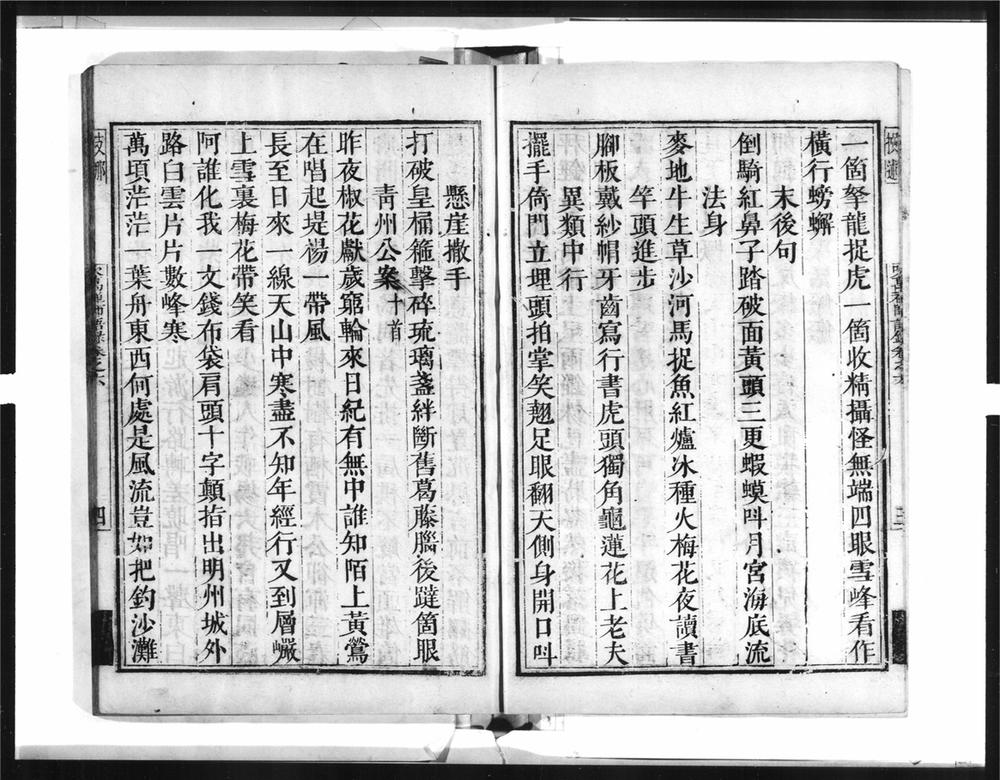 一箇拏龍捉虎一箇收精攝怪無端四眼雪峰看作
橫行螃蠏
末後句
倒騎紅鼻子踏破面黃頭三更蝦蟆呌月宮海底流
法身
麥地牛生草沙河馬捉魚紅爐氷種火梅花夜讀書
竿頭進步
腳板戴紗帽牙齒寫行書虎頭獨角龜蓮花上老夫
異類中行
擺手倚門立埋頭拍掌笑翹足眼翻天側身開口呌
懸崖撒手
打破皇桶箍擊碎琉璃盞絆斷舊葛藤腦後躂箇眼
靑州公案十首
昨夜椒花獻歲窮輪來日紀有無中誰知陌上黃鶯
在唱起堤楊一帶風
長至日來一線天山中寒盡不知年經行又到層巗
上雪裏梅花帶笑看
阿誰化我一文錢布袋肩頭十字顛指出明州城外
路白雲片片數峰寒
萬頃茫茫一葉舟東西何處是風流豈如把釣沙灘
四